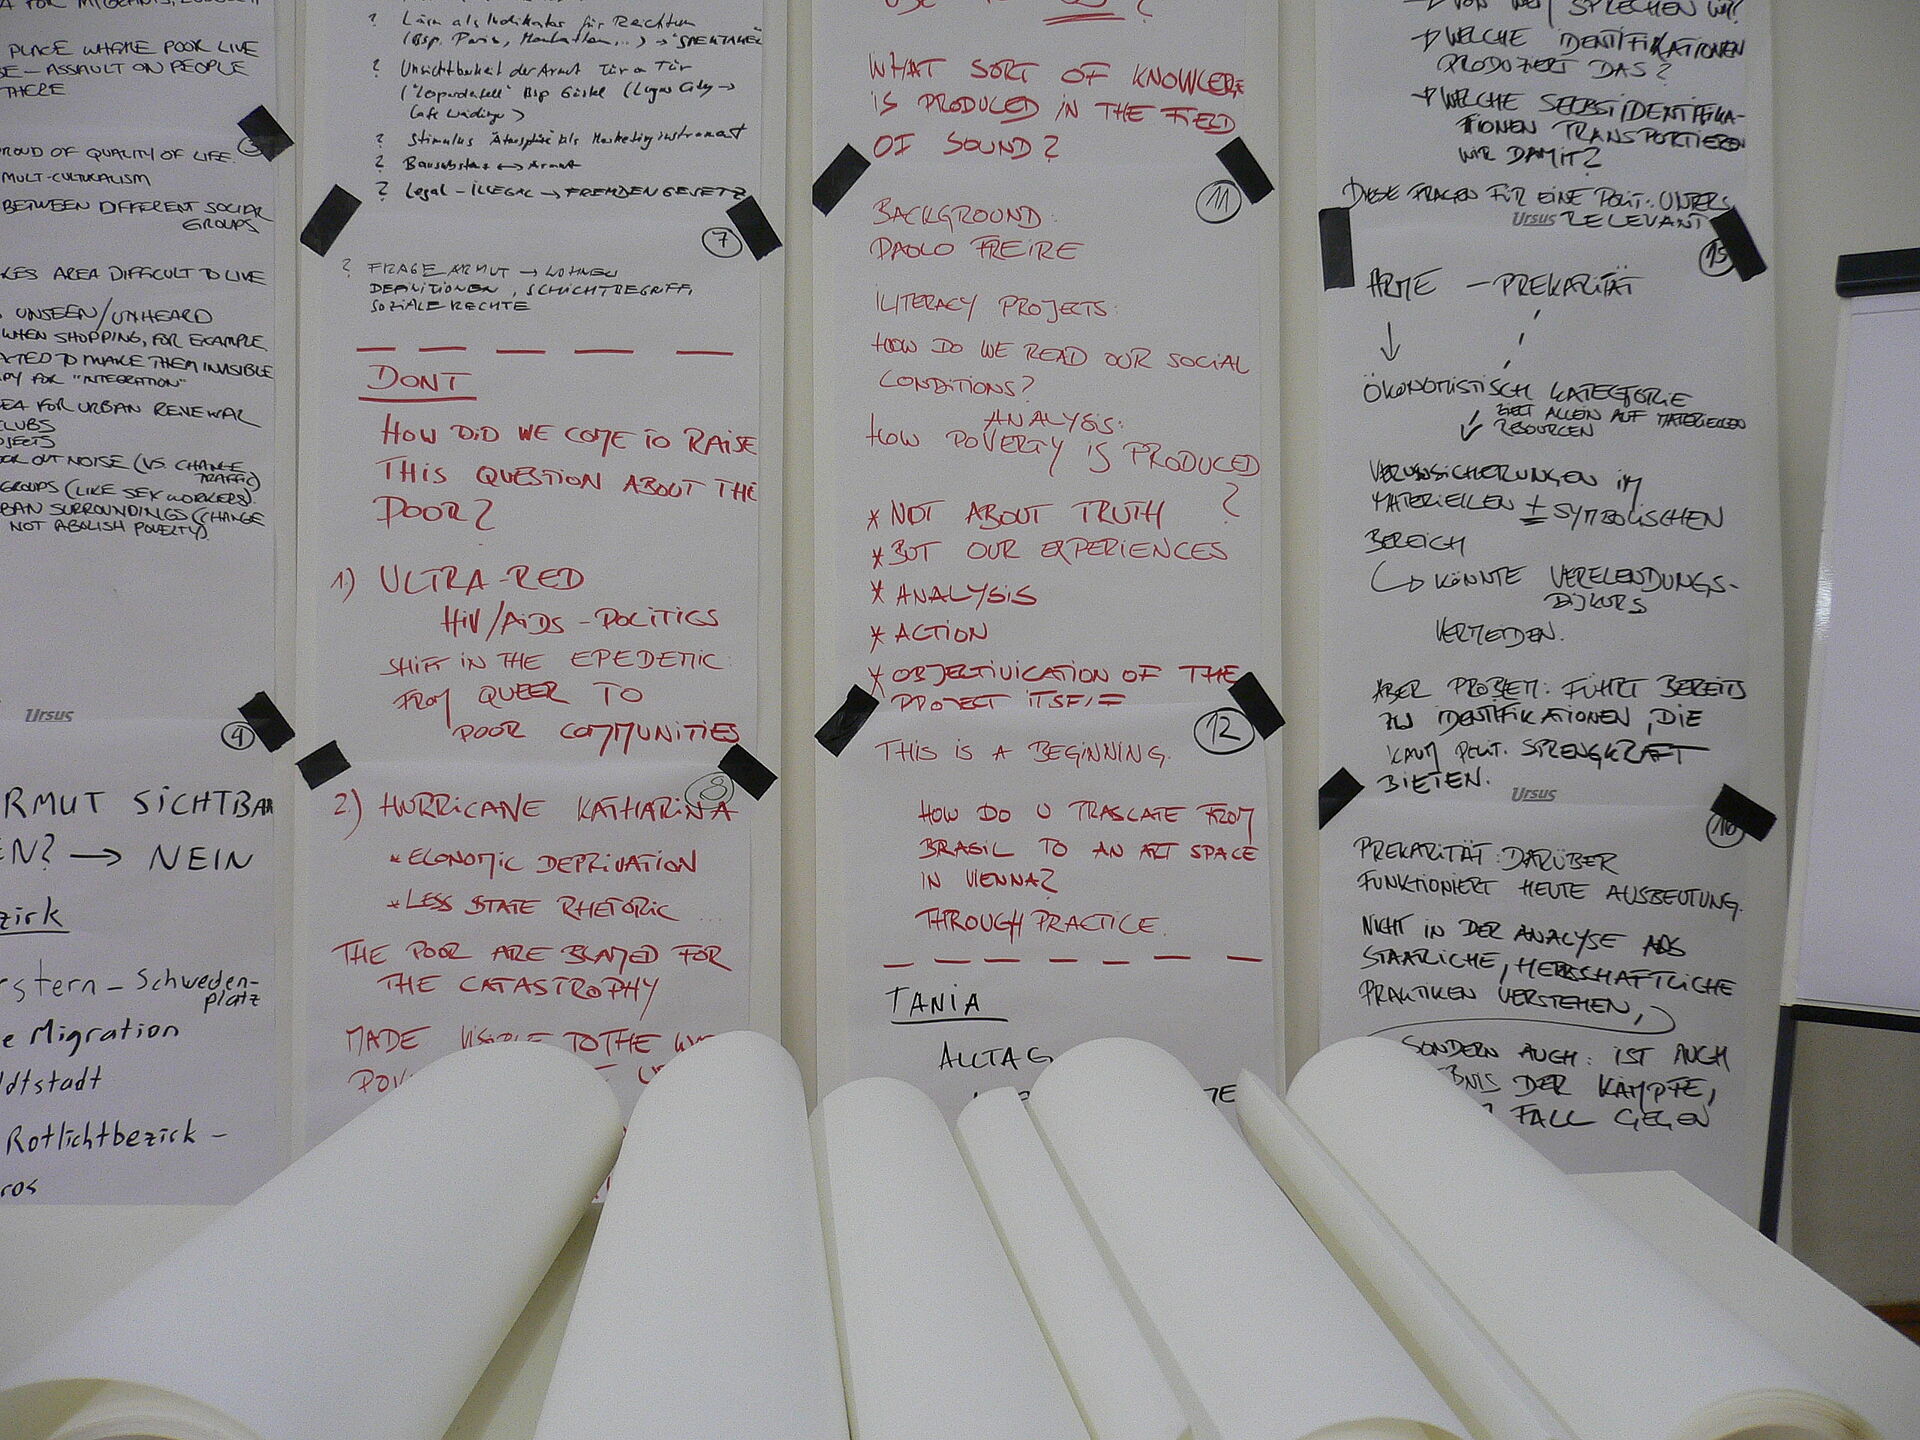 PLACE WHERE POOR LIVE
SE – ASSAULT ON PEOPLE
THERE
ROUD OF QUALITY OF LIFE.
MULT-CULTURALISM
BETWEEN DIFFERENT SOCIAL
GROUPS
KES AREA DIFFICULT TO LIVE
UNSEEN/UNHEARD
WHEN SHOPPING, FOR EXAMPLE
TO MAKE THEM INVISIBLE
FOR "INTEGRATION"
EA FOR URBAN RENEWAL
CLUBS
OJECTS
OUT NOISE (VS. CHANGE
TRAFFIC)
GROUPS (LIKE SEX WORKERS).
BAN SURROUNDINGS (CHANGE
NOT ABOLISH POVERTY).
Ursus
4
RMUT SICHTBAR
EN? → NEIN
zirk
rstern – Schweden-
platz
e Migration
ldtstadt
Rotlichtbezirk –
ros
? Lärm als Indikator für Reichtum
(Bsp. Paris, Manhattan...) → "SPEKTAKEL
? Unsichtbarkeit der Armut Tür a Tür
? Stimulus Atmosphäre als Marketinginstrument
? Bausubstanz ↔ Armut
? Legal – ILLEGAL → FREMDENGESETZ
7
? FRAGE ARMUT → WOHNEN
DEFINITIONEN, SCHICHTBEGRIFF,
SOZIALE RECHTE
DONT
HOW DID WE COME TO RAISE
THIS QUESTION ABOUT THE
POOR?
1) ULTRA-RED
HIV/AIDS – POLITICS
SHIFT IN THE EPEDEMIC
FROM QUEER TO
POOR COMMUNITIES
8
2) HURRICANE KATHARINA
* ECONOMIC DEPRIVATION
* LESS STATE RHETORIC
THE POOR ARE BLAMED FOR
THE CATASTROPHY
MADE VISIBLE TO THE
WHAT SORT OF KNOWLEDGE
IS PRODUCED IN THE FIELD
OF SOUND?
11
BACKGROUND:
PAOLO FREIRE
ILITERACY PROJECTS:
HOW DO WE READ OUR SOCIAL
CONDITIONS?
ANALYSIS:
HOW POVERTY IS PRODUCED
?
* NOT ABOUT TRUTH
* BUT OUR EXPERIENCES
* ANALYSIS
* ACTION
* OBJECTIVICATION OF THE
PROJECT ITSELF
12
THIS IS A BEGINNING.
HOW DO U TRASLATE FROM
BRASIL TO AN ART SPACE
IN VIENNA?
THROUGH PRACTICE.
TANIA
ALLTAG
→ VON WEM SPRECHEN WIR?
→ WELCHE IDENTIFIKATIONEN
PRODUZIERT DAS?
→ WELCHE SELBSTIDENTIFIKA-
TIONEN TRANSPORTIEREN
WIR DAMIT?
DIESE FRAGEN FÜR EINE POLIT. UNTERS.
Ursus RELEVANT
15
ARME – PREKARITÄT
↓
ÖKONOMISTISCH KATEGORIE
ZIELT ALLEIN AUF MATERIELLEN
RESOURCEN
VERUNSICHERUNGEN IM
MATERIELLEN + SYMBOLISCHEN
BEREICH
↳ KÖNNTE VERELENDUNGS-
DISKURS
VERMEIDEN.
ABER PROBLEM: FÜHRT BEREITS
ZU IDENTIFIKATIONEN, DIE
KAUM POLIT. SPRENGKRAFT
BIETEN.
Ursus
16
PREKARITÄT: DARÜBER
FUNKTIONIERT HEUTE AUSBEUTUNG.
NICHT IN DER ANALYSE ALS
STAATLICHE, HERRSCHAFTLICHE
PRAKTIKEN VERSTEHEN,
SONDERN AUCH: IST AUCH
BNIS DER KÄMPFE,
FALL GEGEN